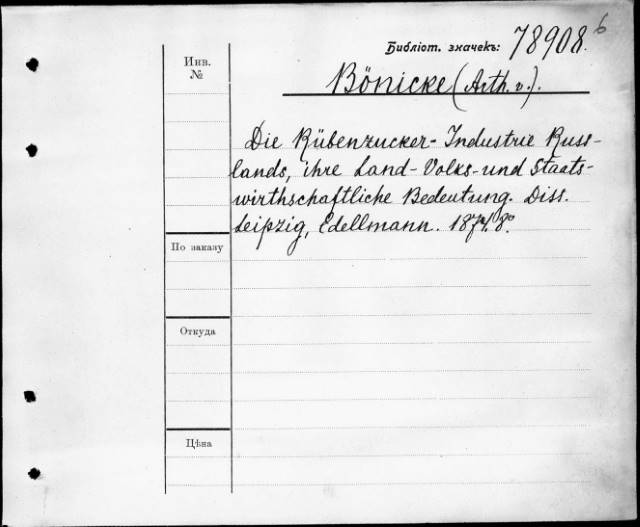 Библіот. значекъ: 78908 б
Инв.
№
Bönicke (Arth. v.).
Die Rübenzucker-Industrie Russ-
lands, ihre Land-Volks-und Staats-
wirthschaftliche Bedeutung. Diss.
Leipzig, Edelmann. 1874. 8°.
По заказу
Откуда
Цѣна